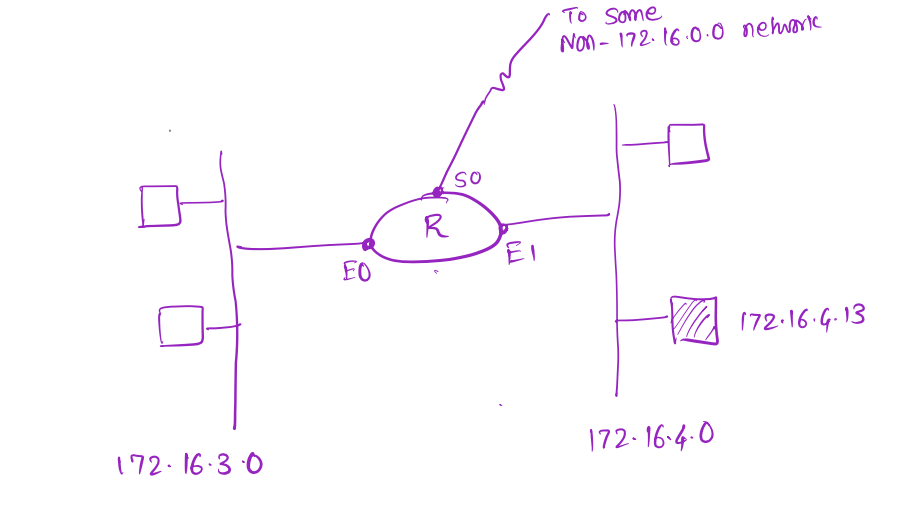 To Some
Non-172.16.0.0 network
S0
R
E0
E1
172.16.4.13
172.16.4.0
172.16.3.0